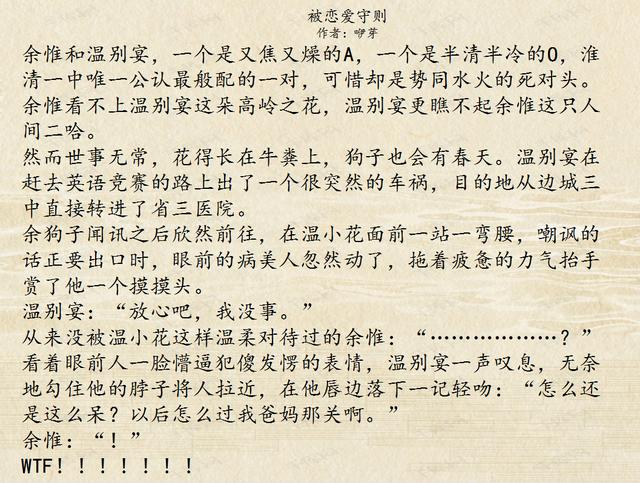 被恋爱守则
作者：咿芽
余惟和温别宴，一个是又焦又燥的A，一个是半清半冷的O，淮
清一中唯一公认最般配的一对，可惜却是势同水火的死对头。
余惟看不上温别宴这朵高岭之花，温别宴更瞧不起余惟这只人
间二哈。
然而世事无常，花得长在牛粪上，狗子也会有春天。温别宴在
赶去英语竞赛的路上出了一个很突然的车祸，目的地从边城三
中直接转进了省三医院。
余狗子闻讯之后欣然前往，在温小花面前一站一弯腰，嘲讽的
话正要出口时，眼前的病美人忽然动了，拖着疲惫的力气抬手
赏了他一个摸摸头。
温别宴：“放心吧，我没事。”
从来没被温小花这样温柔对待过的余惟：“………………？”
看着眼前人一脸懵逼犯傻发愣的表情，温别宴一声叹息，无奈
地勾住他的脖子将人拉近，在他唇边落下一记轻吻：“怎么还
是这么呆？以后怎么过我爸妈那关啊。”
余惟：“！”
WTF！！！！！！！